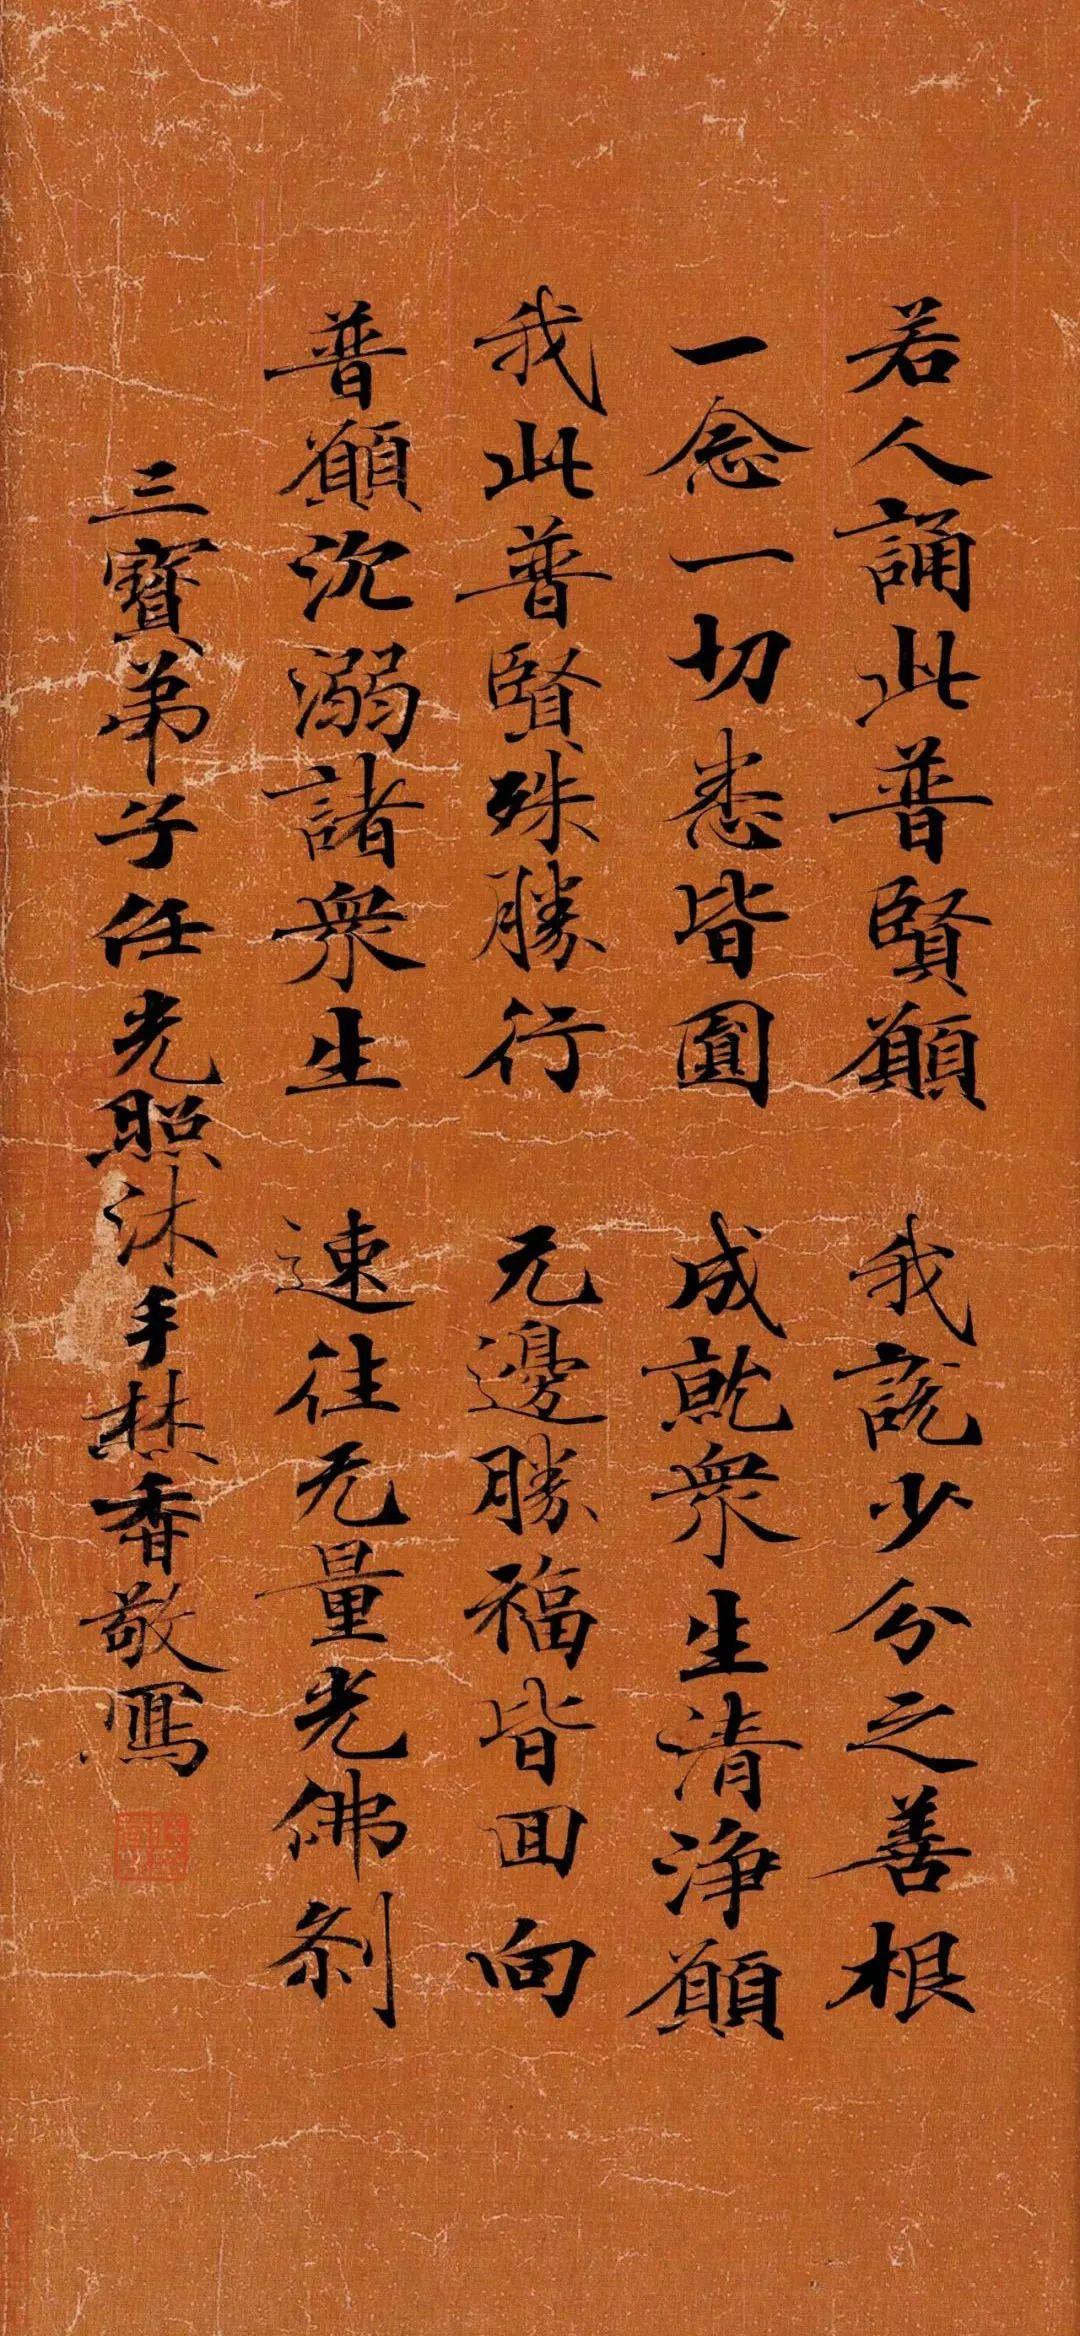 若人誦此普賢願 我說少分之善根
一念一切悉皆圓 成就衆生清淨願
我此普賢殊勝行 无邊勝福皆回向
普願沉溺諸衆生 速往无量光佛刹
三寶弟子任光照沐手焚香敬寫